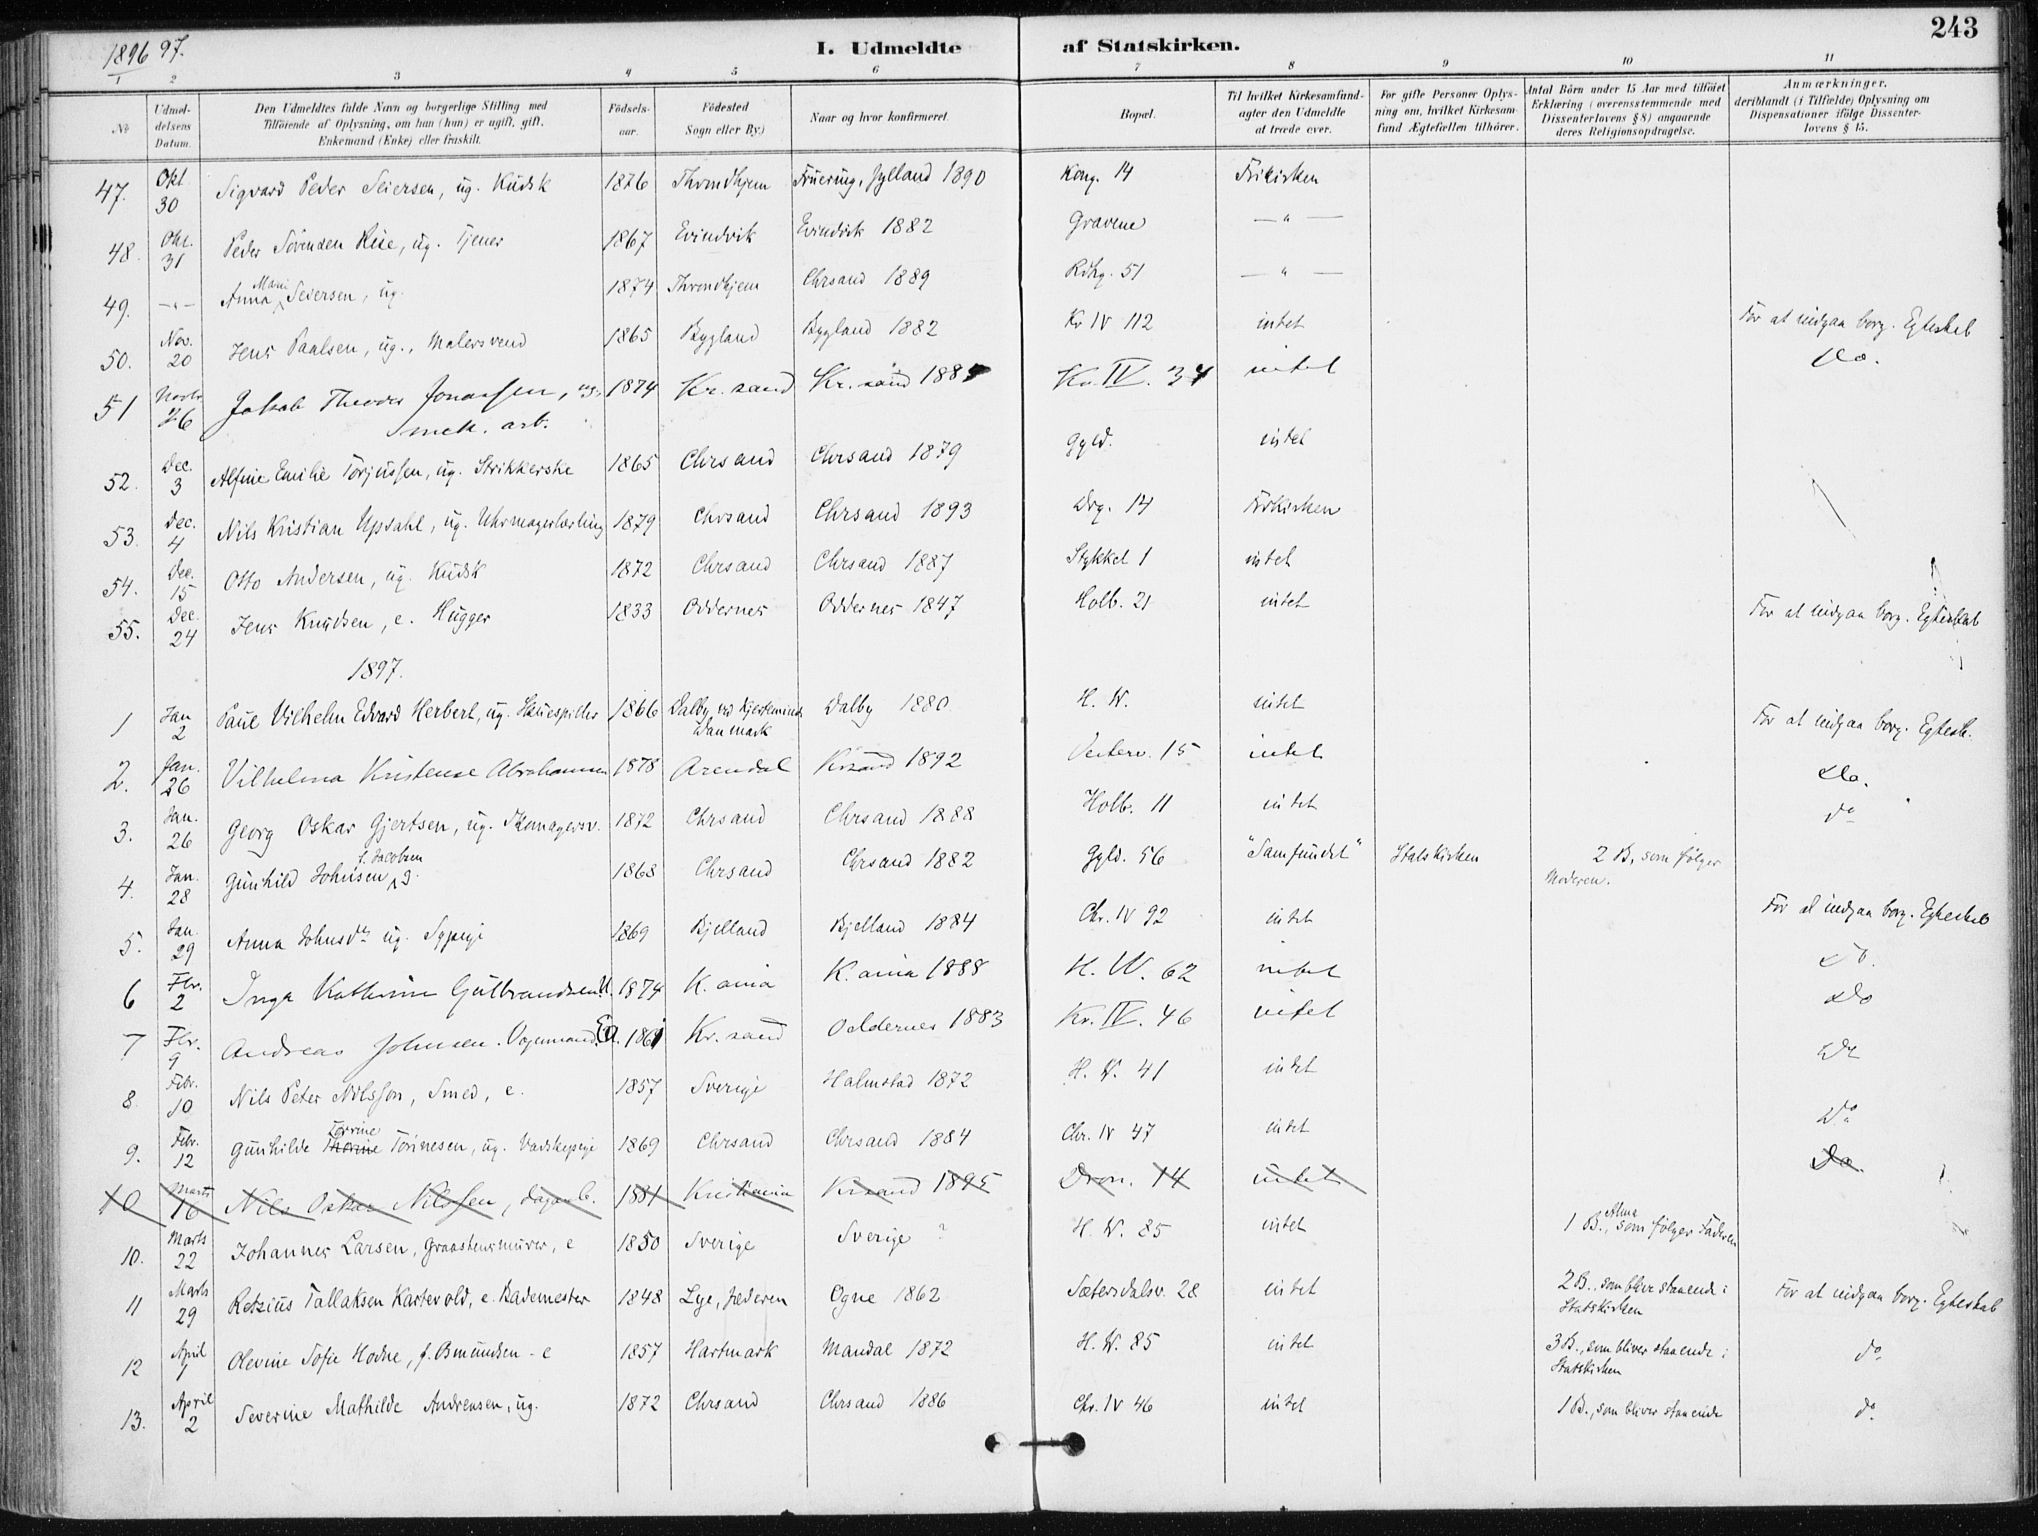 1896 97.
I. Udmeldte af Statskirken.
243
1 2 3 4 5 6 7 8 9 10 11
No
Udmeldelsens Datum.
Den Udmeldtes fulde Navn og borgerlige Stilling med Tilföiende af Oplysning, om han (hun) er ugift, gift, Enkemand (Enke) eller fraskilt.
Födselsaar.
Födested Sogn eller By.)
Naar og hvor konfirmeret.
Bopæl.
Til hvilket Kirkesamfund agter den Udmeldte at træde over.
For gifte Personer Oplysning om, hvilket Kirkesamfund Ægtefællen tilhörer.
Antal Börn under 15 Aar med tilföiet Erklæring (overensstemmende med Dissenterlovens § 8) angaaende deres Religionsopdragelse.
Anmærkninger, deriblandt (i Tilfælde) Oplysning om Dispensationer ifölge Dissenterlovens § 15.
47. Okt. 30 Sigvard Peder Seiersen, ug. Kudsk 1876 Throndhjem Fruering, Jylland 1890 Kong. 14 Frikirken
48. Okt. 31 Peder Sörensen Rise, ug. Tjener 1867 Evindvik Evindvik 1882 Gravene — " —
49. — " — Anna Marie Seiersen, ug. 1874 Throndhjem Chrsand 1889 Rdhg. 51 — " —
50. Nov. 20 Jens Paalsen, ug., Malersvend 1865 Bygland Bygland 1882 Kv IV 112 intet For at indgaa borg. Egteskab
51 Novbr 26 Jakob Theodor Jonassen, ug. mek. arb. 1874 Kr. sand Kr. sand 1889 Kv. IV. 34 intet Do.
52. Dec. 3 Alfine Emilie Torjussen, ug. Strikkerske 1865 Chrsand Chrsand 1879 Gyld. intet
53. Dec. 4 Nils Kristian Updahl, ug. Uhrmagerlærling 1879 Chrsand Chrsand 1893 Drg. 14 Frikirken
54. Dec. 15 Otto Andersen, ug. Kudsk 1872 Chrsand Chrsand 1887 Stykket 1 intet
55. Dec. 24 Jens Knudsen, e. Hugger 1833 Oddernes Oddernes 1847 Holb. 21 intet For at indgaa borg. Egteskab
1897.
1 Jan 2 Paul Vilhelm Edvard Herbert, ug. Skuespiller 1866 Dalby ved Kjerteminde Danmark Dalby 1880 H. W. intet For at indgaa borg. Egtesk.
2. Jan. 26 Vilhelma Kristense Abrahamsen 1878 Arendal Krsand 1892 Vesterv. 15 intet do.
3. Jan. 26 Georg Oskar Gjertsen, ug. Skomagersv. 1872 Chrsand Chrsand 1888 Holb. 11 intet do
4. Jan. 28 Gunhild Johnsen f. Jacobsen g. 1868 Chrsand Chrsand 1882 Gyld. 56 "Samfundet" Statskirken 2 B, som følger Moderen.
5. Jan 29 Anna Johnsdr ug. Sypige 1869 Bjelland Bjelland 1884 Chr. IV 92 intet For at indgaa borg. Egteskab
6 Fbr. 2 Inga Kathrine Gulbrandsen U. 1874 K. ania K. ania 1888 H. W. 62 intet do.
7 Fbr. 9 Andreas Johnsen. Vognmand. E. 1861 Kr. sand Oddernes 1883 Kv. IV. 46 intet do
8 Febr. 10 Nils Peter Nilsson, Smed, e. 1857 Sverige Halmstad 1872 H. W. 41 intet do
9. Febr. 12 Gunhilde Thorine Torrine Tönnesen, ug. Vadskepige 1869 Chrsand Chrsand 1884 Chr. IV 47 intet do
10 Marts 16 Nils Oskar Nilssen, dagarb. 1881 Kristiania Krsand 1895 Dron. 14 intet do.
10. Marts 22 Johannes Larsen, Graastensmurer, e 1850 Sverige Sverige ? H. W. 85 intet 1 B., Alma som følger Faderen
11 Marts 29 Retzius Tallaksen Kartevold, e. Bademester 1848 Lye, Jæderen Ogne 1862 Sætersdalsv. 28 intet 2 B., som blive staaende i Statskirken For at indgaa borg. Egteskab
12 April 1 Olevine Sofie Hodne, f. Omundsen - e 1857 Hartmark Mandal 1872 H. W. 85 intet 3 B., som bliver staaende i Statskirken do
13. April 2 Severine Mathilde Andreasen, ug. 1872 Chrsand Chrsand 1886 Chr. IV 46 intet 1 B., som bliver staaende do